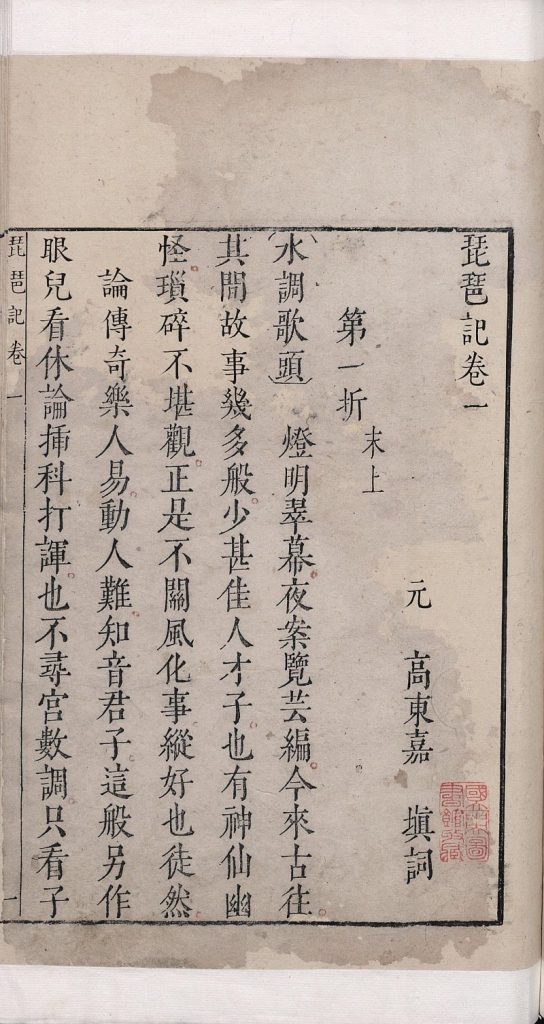 琵琶記卷一
元　高東嘉　塡詞
第一折　末上
水調歌頭　燈明翠幕夜案覽芸編今來古往
其間故事幾多般少甚佳人才子也有神仙幽
怪瑣碎不堪觀正是不關風化事縱好也徒然
論傳奇樂人易動人難知音君子這般另作
眼兒看休論揷科打諢也不尋宮數調只看子
琵琶記卷一
一
國立北平圖書館收藏